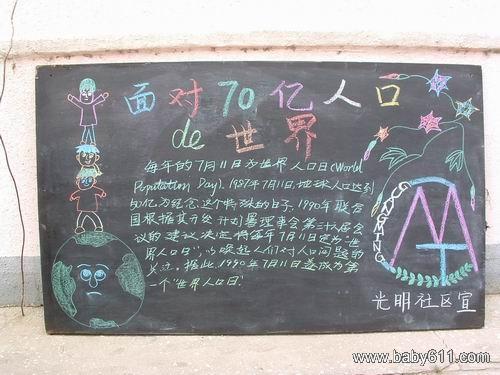 面对70亿人口
de 世界
每年的7月11日为世界人口日(World
Population Day). 1987年7月11日,地球人口达到
50亿.为纪念这个特殊的日子,1990年联合
国根据其开发计划署理事会第三十六届会
议的建议,决定将每年7月11日定为"世
界人口日",以唤起人们对人口问题的
关注。据此,1990年7月11日遂成为第
一个"世界人口日".
GUANGMING
光明社区宣
www.baby611.com